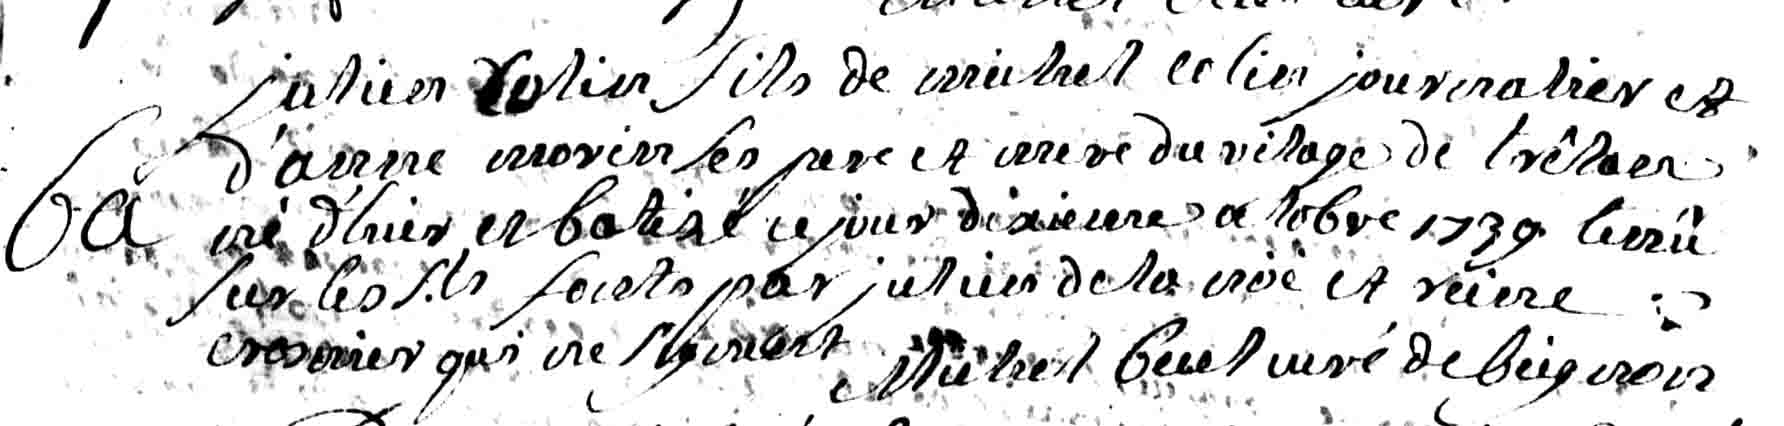 julien Colin fils de michel colin journalier et
d'anne morin ses pere et mere du vilage de trêlan
Ba né d'hier et batizé ce jour dixieme octobre 1739 tenû
sur les s.ts fonts par julien de la noë et reine
qui ne signent Michel curé de beignon